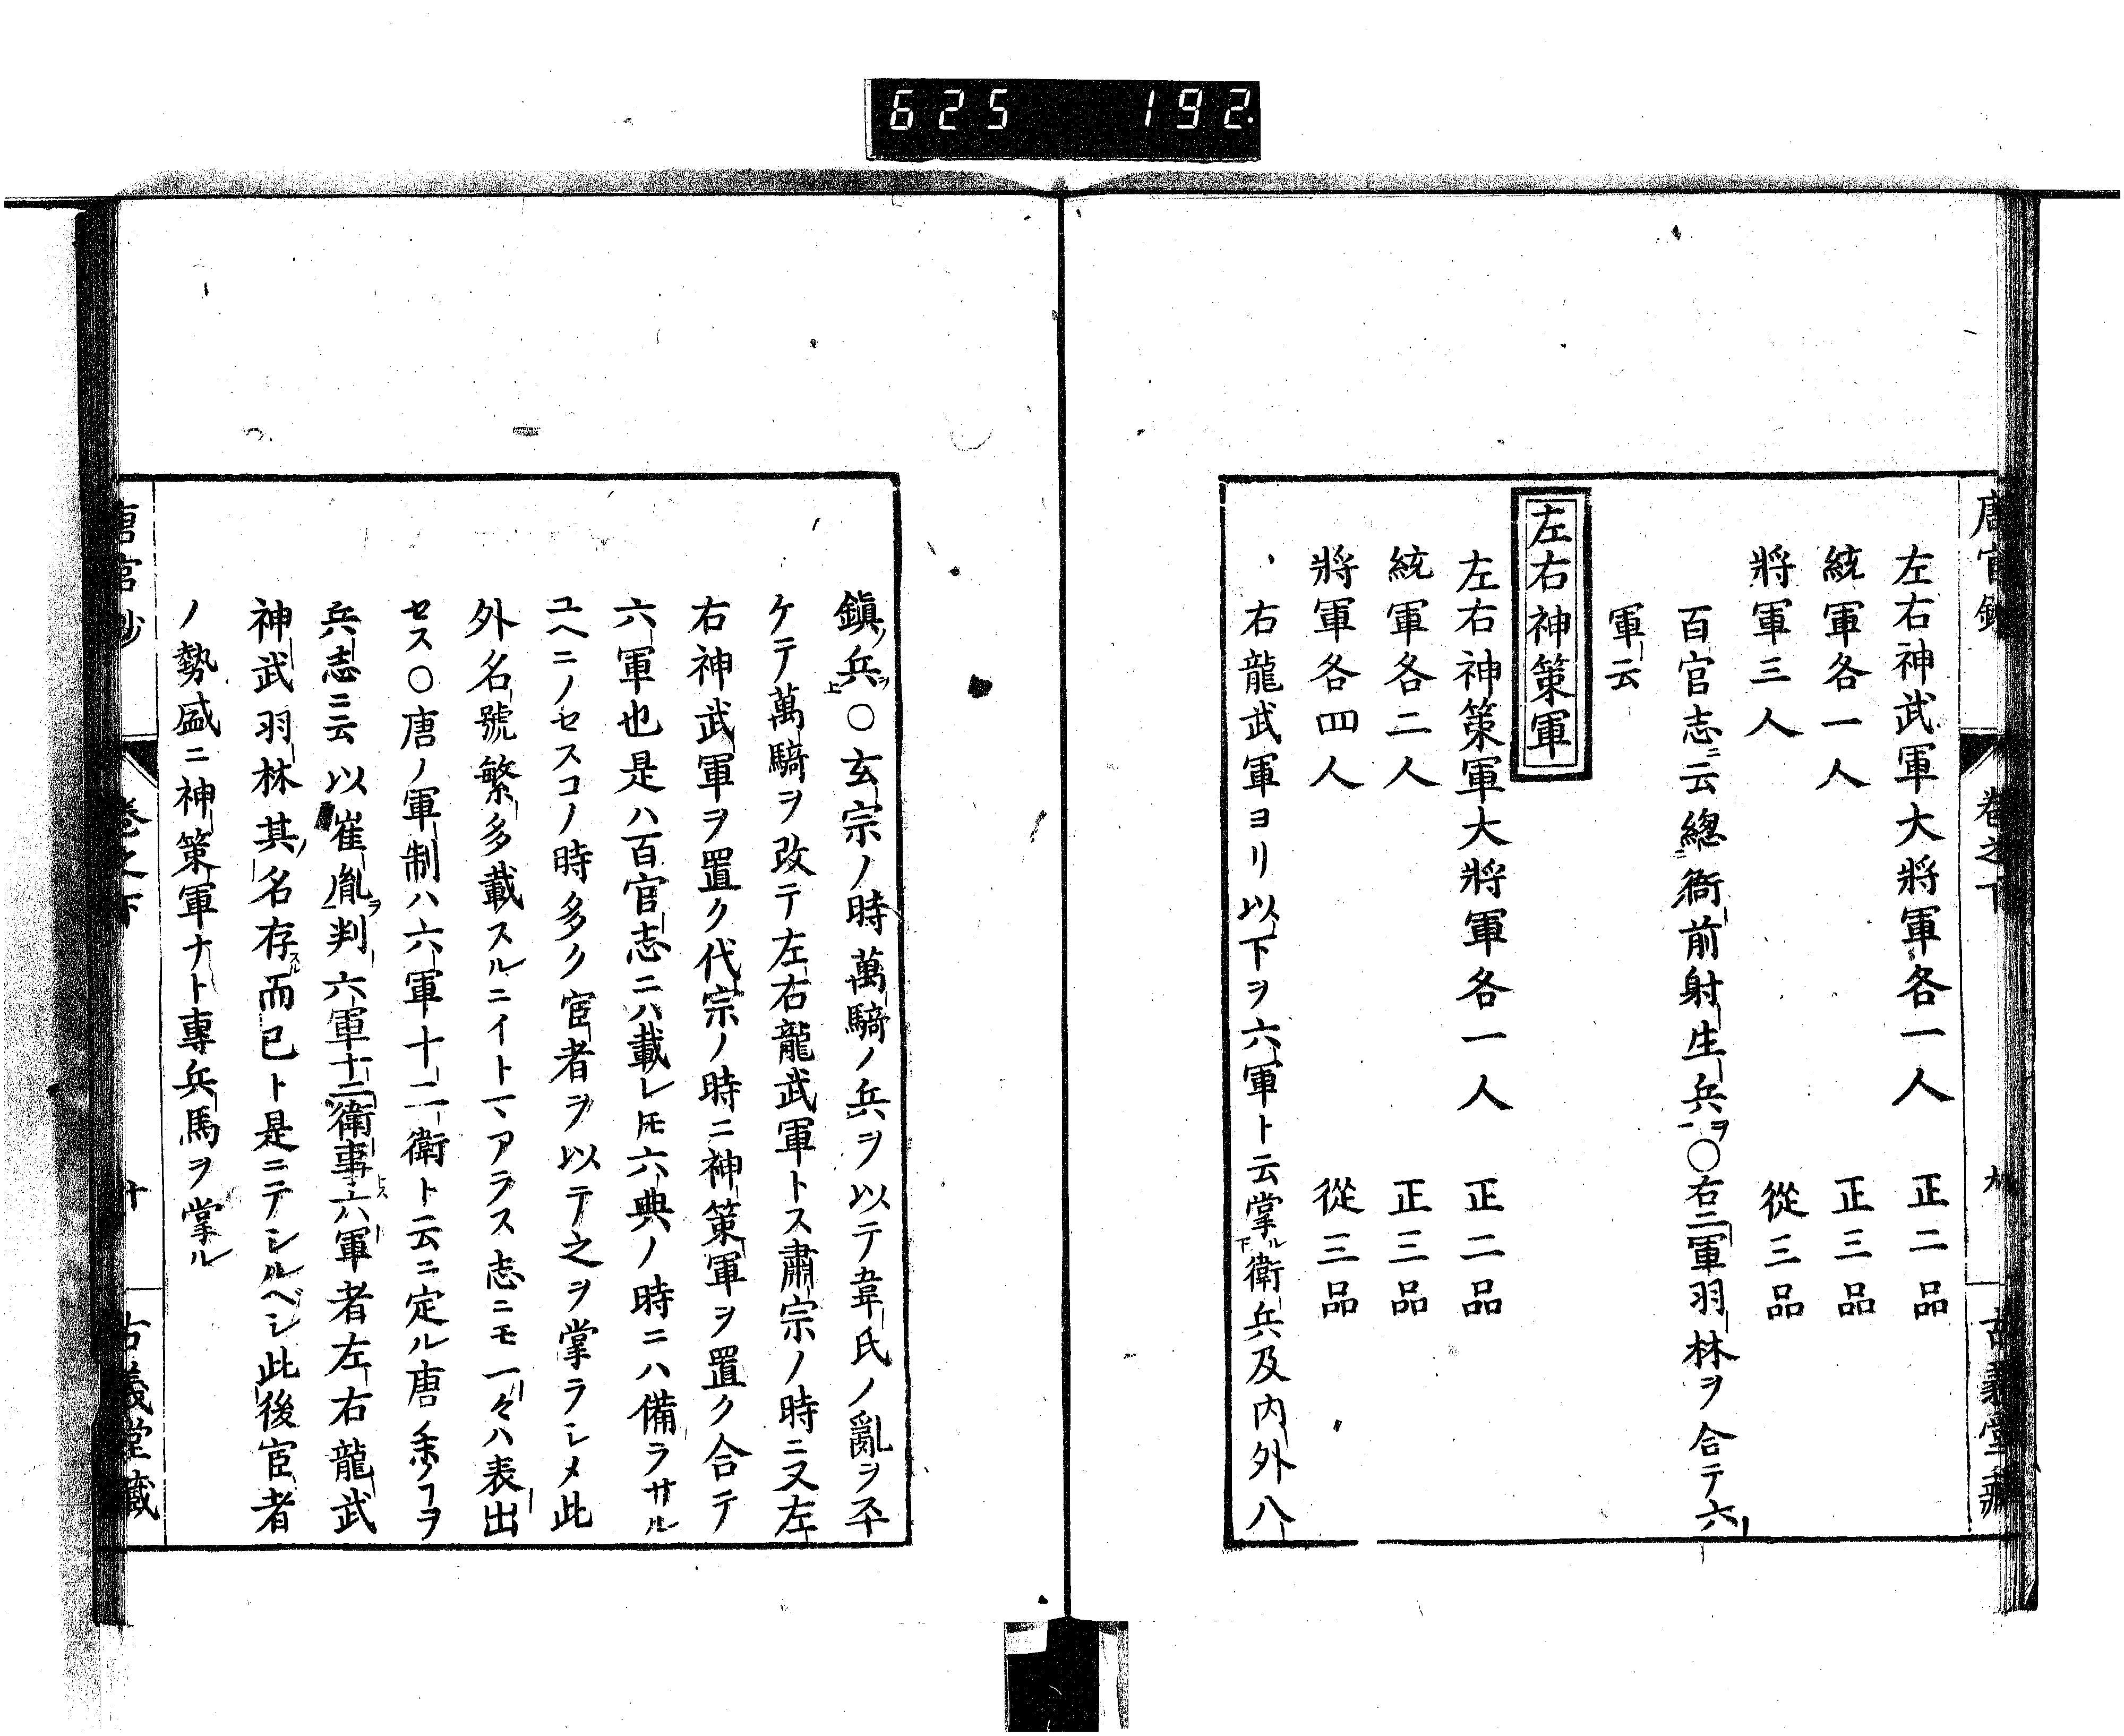 625 192.
唐官鈔 卷之下 九 古義堂藏
左右神武軍大將軍各一人 正二品
統軍各一人 正三品
將軍三人 從三品
百官志ニ云總衙前射生兵ヲ○右二軍羽林ヲ合テ六
軍云
左右神策軍
左右神策軍大將軍各一人 正二品
統軍各二人 正三品
將軍各四人 從三品
右龍武軍ヨリ以下ヲ六軍ト云掌ル衛兵及内外八
鎭ノ兵ヲ○玄宗ノ時萬騎ノ兵ヲ以テ韋氏ノ亂ヲ平
ケテ萬騎ヲ改テ左右龍武軍トス肅宗ノ時ニ又左
右神武軍ヲ置ク代宗ノ時ニ神策軍ヲ置ク合テ
六軍也是ハ百官志ニハ載レ𪜈六典ノ時ニハ備ラサル
ユヘニノセスコノ時多ク宦者ヲ以テ之ヲ掌ラシメ此
外名號繁多載スルニイトマアラス志ニモ一々ハ表出
セス○唐ノ軍制ハ六軍十二衛ト云ニ定ル唐ノヿヲ
兵志ニ云以崔胤ヲ判六軍十二衛事六軍者左右龍武
神武羽林其名存スル而已ト是ニテシルベシ此後宦者
ノ勢盛ニ神策軍ナト專兵馬ヲ掌ル
唐官鈔 卷之下 十 古義堂藏